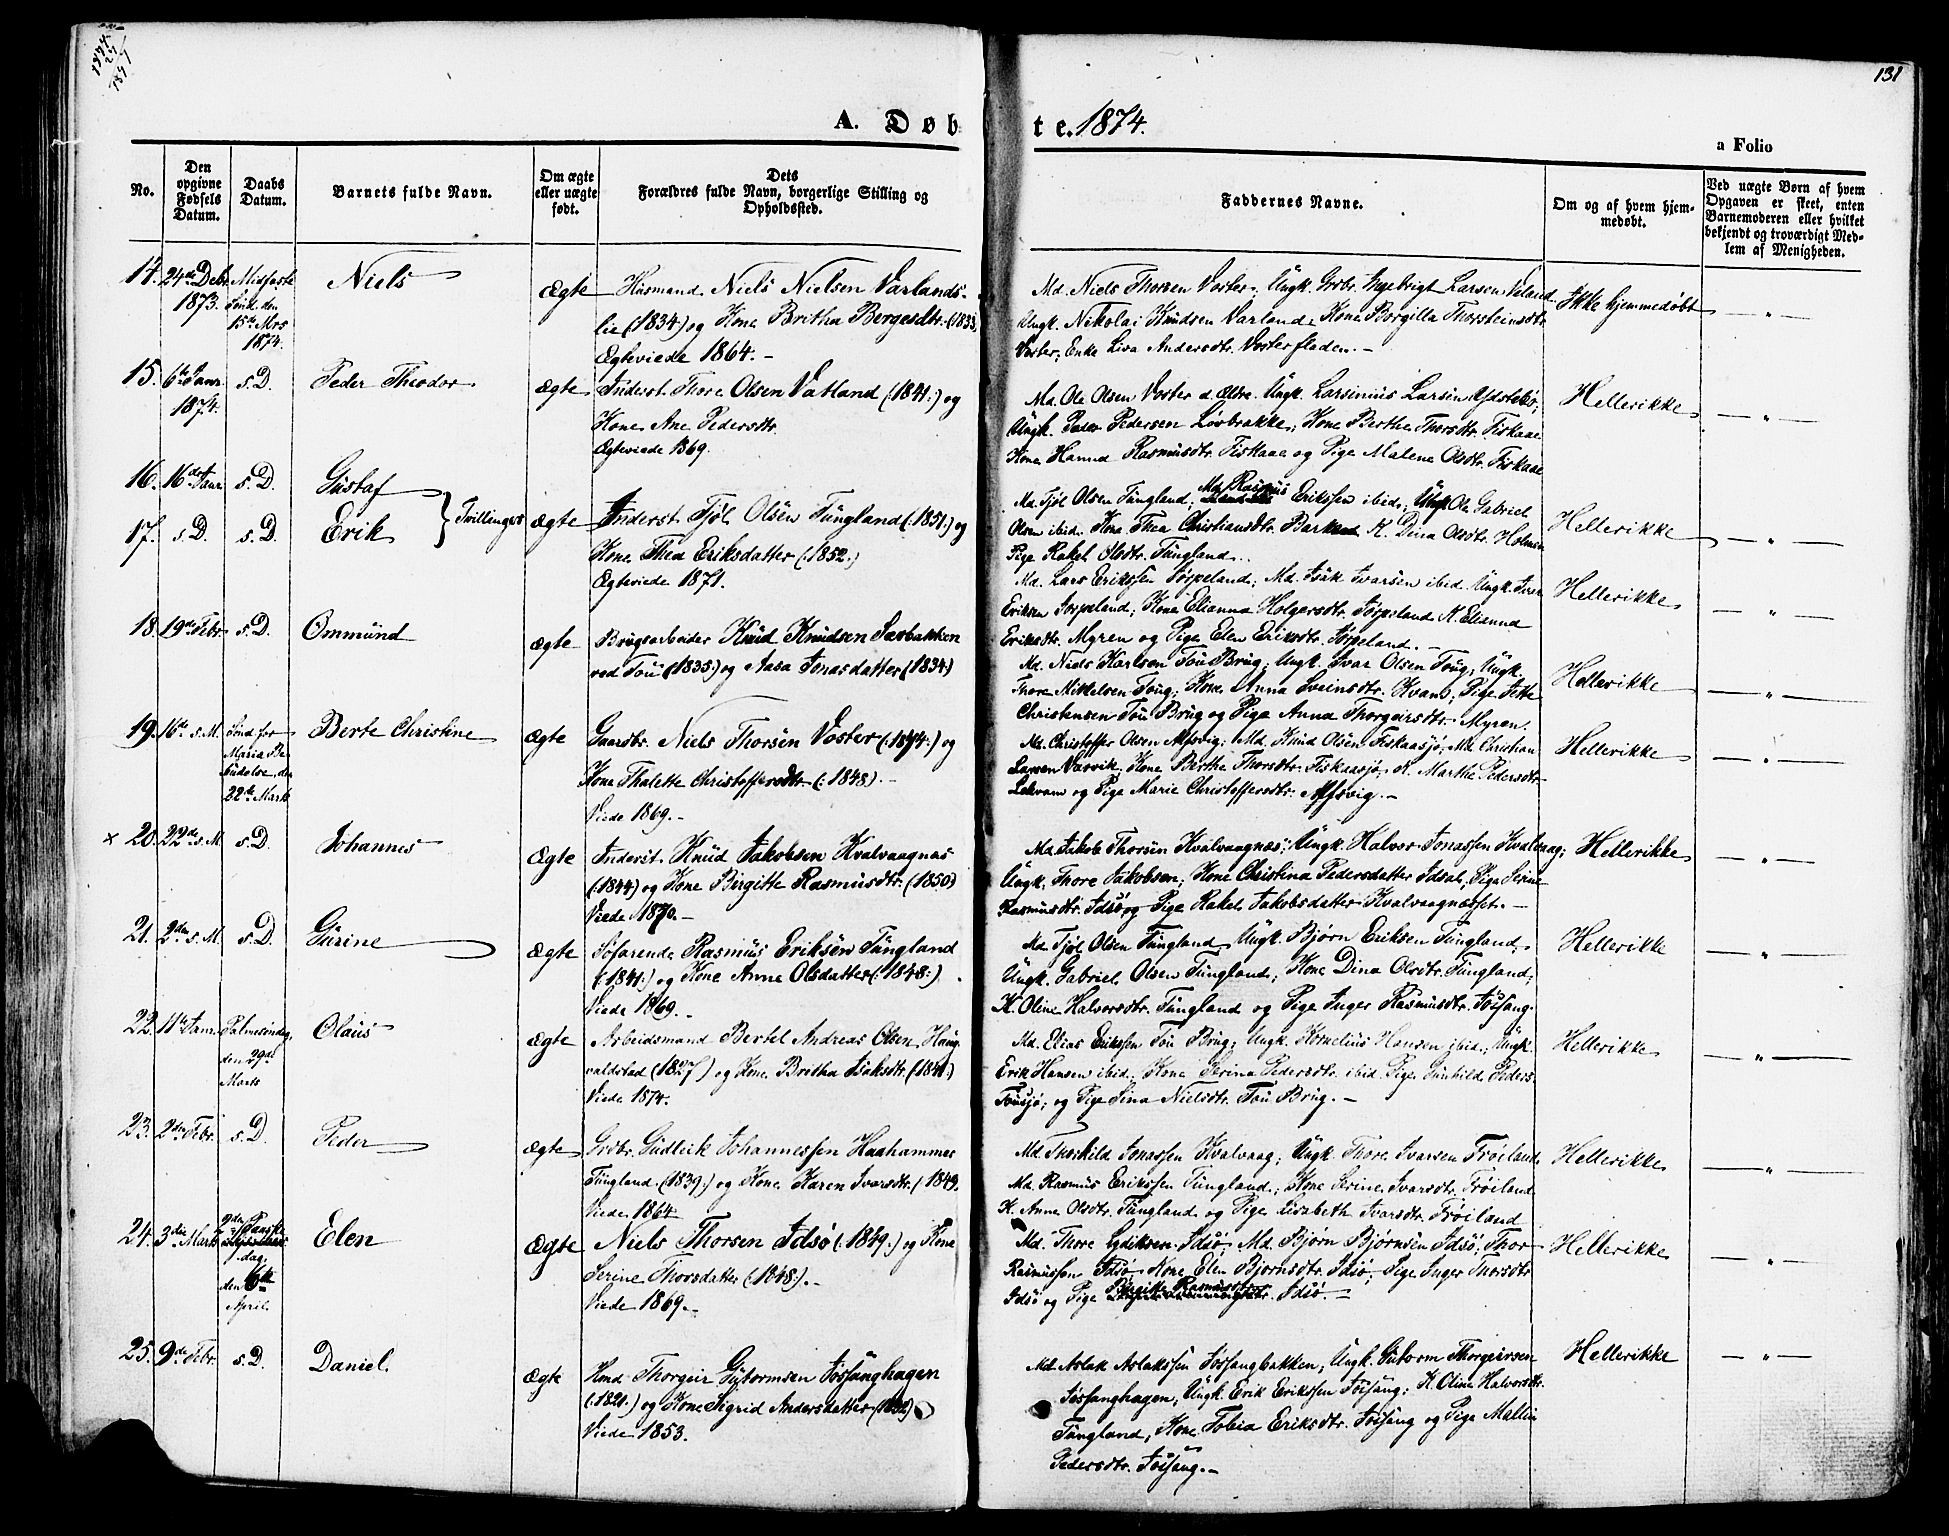 131
A. Døbte. 1874.
a Folio
No.
Den opgivne Fødsels Datum.
Daabs Datum.
Barnets fulde Navn.
Om ægte eller uægte født.
Dets Forældres fulde Navn, borgerlige Stilling og Opholdssted.
Faddernes Navne.
Om og af hvem hjemmedøbt.
Ved uægte Børn af hvem Opgaven er skeet, enten Barnemoderen eller hvilket bekjendt og troværdigt Medlem af Menigheden.
14. 24de Debr 1873. Midfaste Sønd. den 15de Mrs 1874. Niels ægte
Husmand Niels Nielsen Varlands-
lie (1834) og Kone Britha Bergesdtr.
Ægteviede 1864.-
Md. Niels Thorsen Voster. Ungk. Grbr. Ingebrigt Larsen
Ungk. Nikolai Knudsen Varland. Kone Borgilla Thorsteinsdtr.
Voster; Enke Liva Andersdtr. Vosterfleden.-
Ikke hjemmedøbt — " —
15. 6te Janr. 1874. s. D. Peder Theodor ægte
Inderst Thore Olsen Vatland (:1841:) og
Kone Ane Pedersdtr.
Ægteviede 1869.
Md. Ole Olsen Voster d. Ældre. Ungk. Larsinius Larsen
Ungk. Peder Pedersen Løvbrække; Kone Berthe Thorsdtr. Fiskaae
Kone Hanna Rasmusdtr. Fiskaae og Pige Malene Olsdtr. Fiskaae
Hellerikke — " —
16. 16de Janr. s. D. Gustaf
17. s. D. s. D. Erik } Tvillinger ægte
Inderst Tjøl Olsen Tungland (:1851:) og
Kone Thea Eriksdatter (:1852:)
Ægteviede 1871.
Md. Tjøl Olsen Tungland; Md. Rasmus Erikssen ibid; Ungk. Ole Gabriel
Olsen ibid. Kone Thea Christiansdtr. K. Dina Olsdtr. Holmen
Pige Rakel Olsdtr. Tungland.
Hellerikke — " —
Md. Lars Erikssen Jøspeland; Md. Isak Ivarsen ibid. Ungk. Ivar
Eriksen Jøspeland; Kone Elianna Holgersdtr. Jøspeland K. Elianna
Eriksdtr. Myren og Pige Elen Eriksdtr. Jøspeland.-
Hellerikke — " —
18. 19de Febr. s. D. Ommund ægte
Brugsarbeider Knud Knudsen
ved Tou (1835:) og Aasa Jonasdatter (1834:)
Md. Niels Karlsen Tou Brug; Ungk. Ivar Olsen Toug; Ungk.
Thore Mikkelsen Toug; Kone Anna Sveinsdtr. Kvam; Pige Jette
Christensen Tou Brug og Pige Anna Thorgeirsdtr. Myren.
Hellerikke — " —
19. 16de s. M. Sønd. før Maria Bebudelse, den 22de Marts Berte Christine ægte
Gaardbr. Niels Thorsen Voster og
Kone Thalette Christoffersdtr. (:1848).-
Viede 1869.-
Md. Christoffer Olsen Alsvig; Md. Knud Olsen Fiskaasjø; Md. Christian
Larsen Varvik, Kone Berthe Thorsdtr. Fiskaasjø, K. Marthe Pedersdtr.
Lekvam og Pige Marie Christoffersdtr. Alsvig.-
Hellerikke — " —
x 20. 22de s. M. s. D. Johannes ægte
Inderst Knud Jakobsen Kvalvaagnæs
(1844) og Kone Birgitte Rasmusdtr. (1850)
Viede 1870.-
Md. Jakob Thorsen Kvalvaagnæs; Ungk. Halvor Jonassen Kvalvaag;
Ungk. Thore Jakobsen; Kone Christina Pedersdatter Idsal; Pige Serine
Rasmusdtr. Idsø og Pige Rakel Jakobsdatter Kvalvaagnæsset.-
Hellerikke — " —
21. 2den s. M. s. D. Gurine ægte
Søfarende Rasmus Eriksen Tungland
(:1841:) og Kone Anne Olsdatter (:1848:)
Viede 1869.-
Md. Tjøl Olsen Tungland, Ungk. Bjørn Eriksen Tungland,
Ungk. Gabriel Olsen Tungland; Kone Dina Olsdtr. Tungland;
K. Oline Halvorsdtr. Tungland og Pige Inger Rasmusdtr. Jøssang.
Hellerikke — " —
22. 11te Janr. Palmesøndag, den 29de Marts Olaus ægte
Arbeidsmand Bertel Andreas Olsen Haug-
valdstad (1827) og Kone Britha Isaksdtr. (1841:)
Viede 1874.
Md. Elias Erikssen Tou Brug; Ungk. Kornelius Hansen ibid.; Ungk.
Erik Hansen ibid.; Kone Serina Pedersdtr. ibid. Pige Gunhild Peders.
Tousjø; og Pige Sina Nielsdtr. Tou Brug.-
Hellerikke — " —
23. 2den Febr. s. D. Peder ægte
Grdbr. Gudleik Johannessen Haahammer
Tungland (1839:) og Kone Karen Ivarsdtr. (1849.
Viede 1864
Md. Thorkild Jonassen Kvalvaag; Ungk. Thore Ivarsen Frøiland
Md. Rasmus Erikssen Tungland; Kone Serine Ivarsdtr. Frøiland
K. Anne Olsdtr. Tungland og Pige Lisabeth Ivarsdtr. Frøiland
Hellerikke — " —
24. 3die Marts 2den Paaske dag den 6te April. Elen ægte
Niels Thorsen Idsø (:1849.) og Kone
Serine Thorsdatter (1848:).-
Viede 1869.-
Md. Thore Lydiksen Idsø; Md. Bjørn Bjørnsen Idsø; Thor
Rasmussen Idsø Kone Elen Bjørnsdtr. Idsø, Pige Inger Thorsdtr.
Idsø og Pige Birgitte Rasmusdtr. Idsø.-
Hellerikke — " —
25. 9de Febr. s. D. Daniel. ægte
Hmd. Thorgeir Guttormsen Jøssanghagen
og Kone Sigrid Andersdatter
Viede 1853.
Md. Aslak Aslakssen Jøssangbakken, Ungk. Gutorm Thorgeirsen
Jøssanghagen, Ungk. Erik Erikssen Jøssang; K. Oline Halvorsdtr.
Tungland, Kone Tobia Eriksdtr. Jøssang og Pige Mallin
Pedersdtr. Jøssang.-
Hellerikke — " —